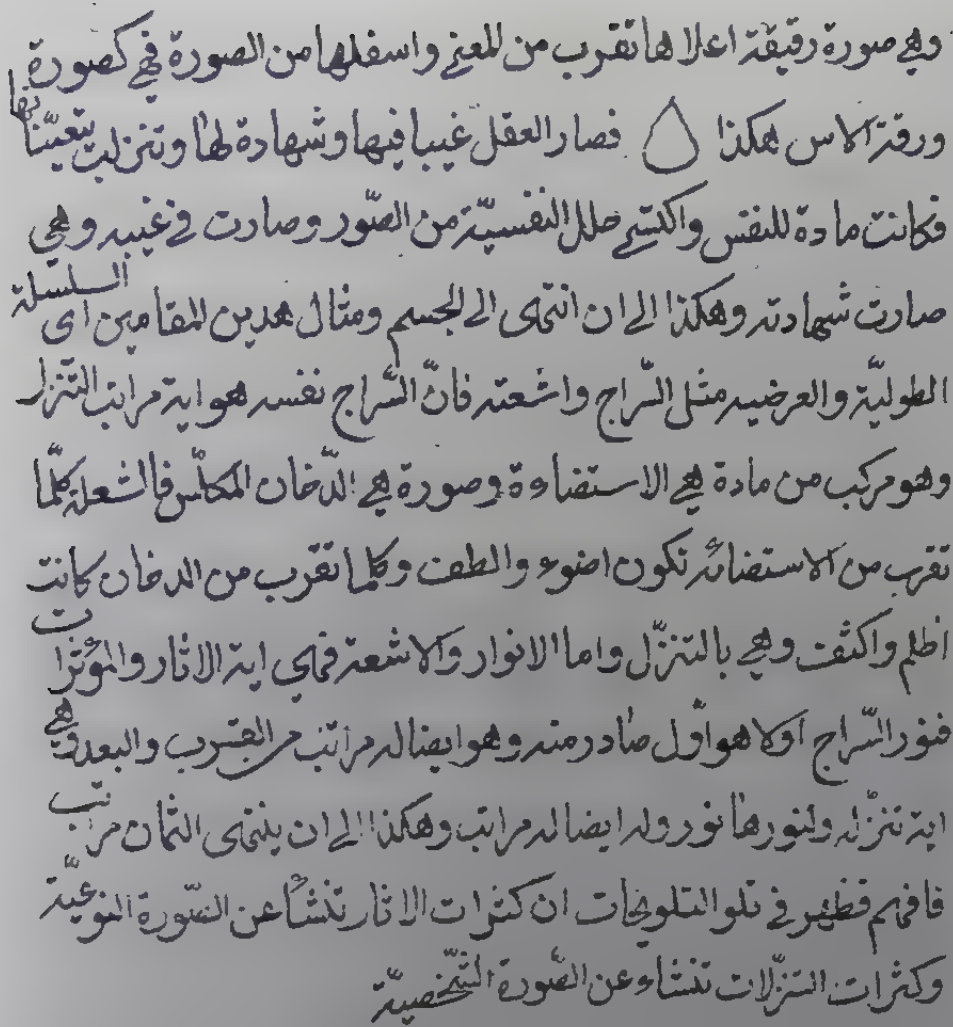 وهي صورة رقيقة اعلاها تقرب من المعنى واسفلها من الصورة فهي كصورة
ورقة الاس هكذا فصار العقل غيبا فيها وشهادة لها وتنزلت بتعيناتها
فكانت مادة للنفس واكتسى حلل النفسيّة من الصّور وصارت في غيبه وهي
صارت شهادته وهكذا الى ان انتهى الى الجسم ومثال هدين المقامين اى السلسلة
الطوليّة والعرضيه مثل السّراج واشعته فانّ السّراج نفسه هو اية مراتب التّنزل
وهو مركب من مادة هي الاستضاءة وصورة هي الدّخان المكلّس فالشعلة كلّما
تقرب من الاستضائه تكون اضوء والطف وكلما تقرب من الدخان كانت
اظلم واكثف وهي بالتنزّل واما الانوار والاشعة فهي اية الاثار والمؤثرات
فنور السّراج اولا هو اوّل صادر منه وهو ايضا له مراتب من القرب والبعد وهي
اية تنزّله ولنورها نور وله ايضا له مراتب وهكذا الى ان ينتهى الثمان مراتب
فافهم فظهر في تلو التلويحات ان كثرات الاثار تنشأ عن الصّورة النوعيّة
وكثرات التنزّلات تنشاء عن الصّورة الشّخصيّة